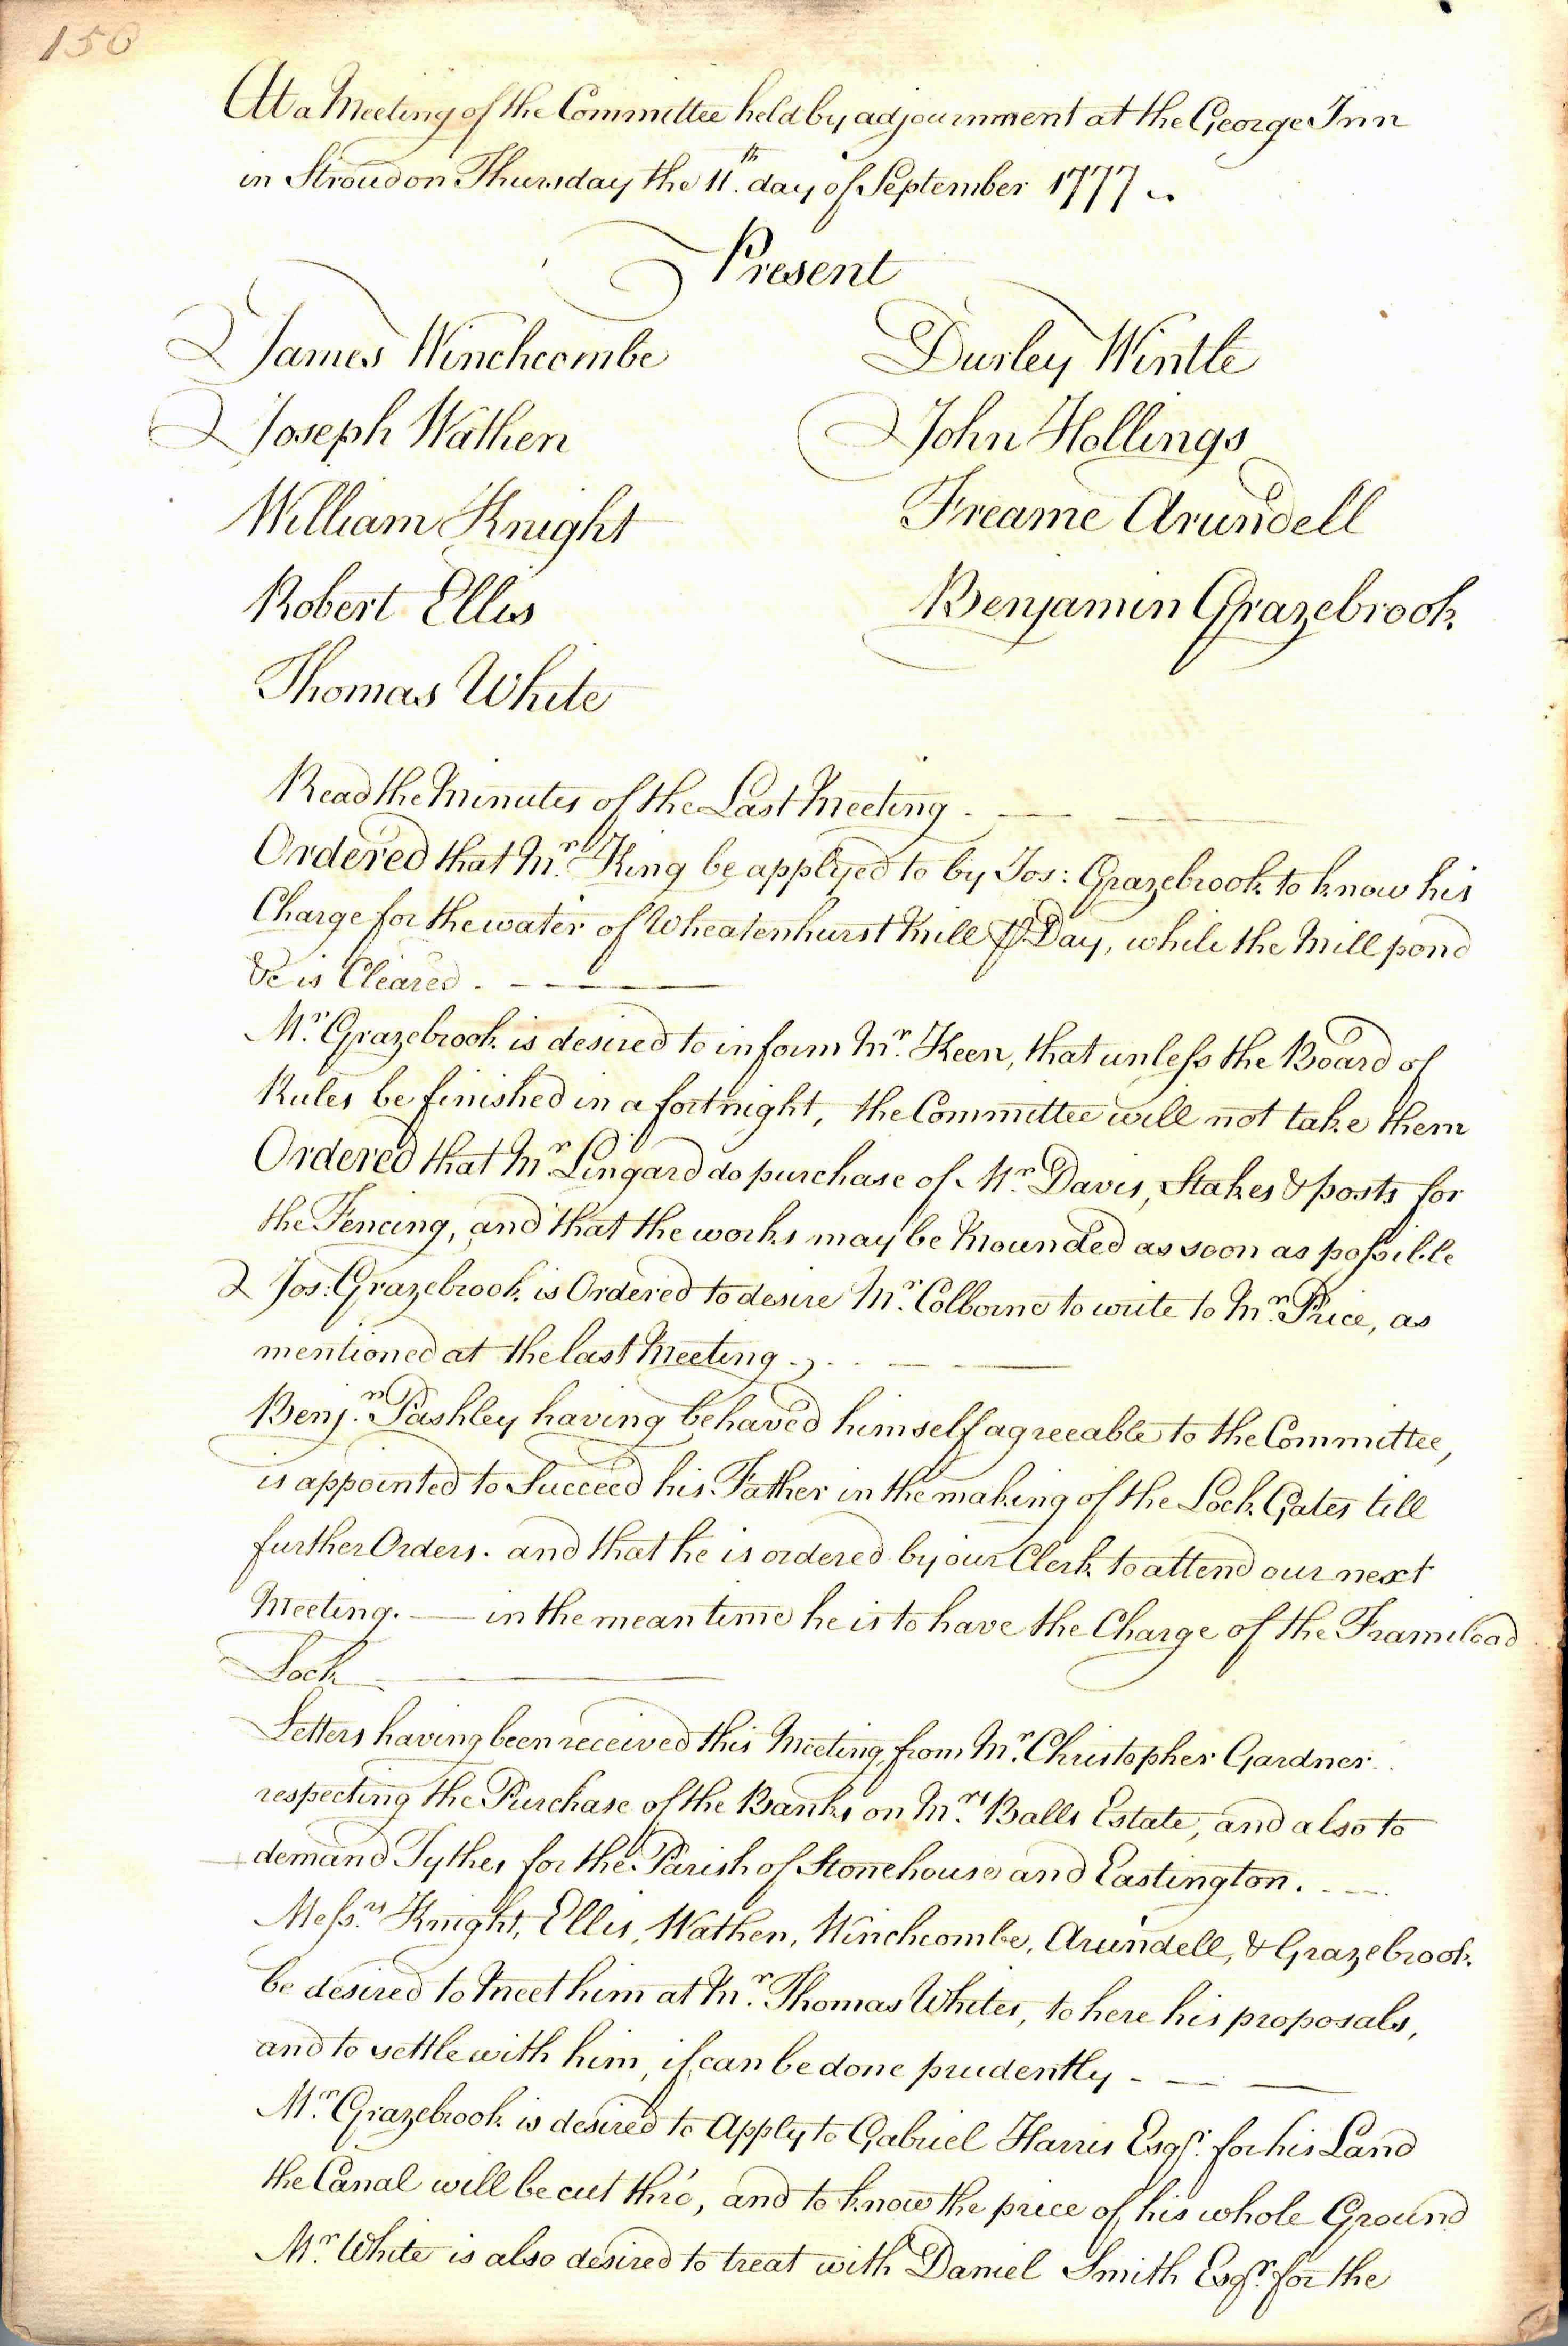 150
At a Meeting of the Committee held by adjournment at the George Inn
in Stroud on Thursday the 11.th day of September 1777
Present
James Winchcombe Durley Wintle
Joseph Wathen John Hollings
William Knight Freame Arundell
Robert Ellis Benjamin Grazebrook
Thomas White
Read the Minutes of the Last Meeting.
Ordered that Mr. King be applyed to by Jos: Grazebrook to know his
Charge for the water of Wheatenhurst Mill ⅌ Day, while the Mill pond
&c is Cleared.
Mr. Grazebrook is desired to inform Mr. Keen, that unleſs the Board of
Rules be finished in a fortnight, the Committee will not take them
Ordered that Mr. Lingard do purchase of Mr. Davis, Stakes & posts for
the Fencing, and that the works may be Mounded as soon as poſsible
Jos: Grazebrook is Ordered to desire Mr. Colborne to write to Mr. Price, as
mentioned at the last Meeting.
Benj.n Pashley having behaved himself agreeable to the Committee,
is appointed to Succeed his Father in the making of the Lock Gates till
further Orders. and that he is ordered by our Clerk to attend our next
Meeting. — in the mean time he is to have the Charge of the Framiload
Lock
Letters having been received this Meeting, from Mr. Christopher Gardner
respecting the Purchase of the Banks on Mrs. Balls Estate, and also to
demand Tythes for the Parish of Stonehouse and Eastington.
Meſs.rs Knight, Ellis, Wathen, Winchcombe, Arundell, & Grazebrook
be desired to Meet him at Mr. Thomas Whites, to here his proposals,
and to settle with him, if can be done prudently
Mr. Grazebrook is desired to Apply to Gabriel Harris Esqr. for his Land
the Canal will be cut thro', and to know the price of his whole Ground
Mr. White is also desired to treat with Daniel Smith Esqr. for the